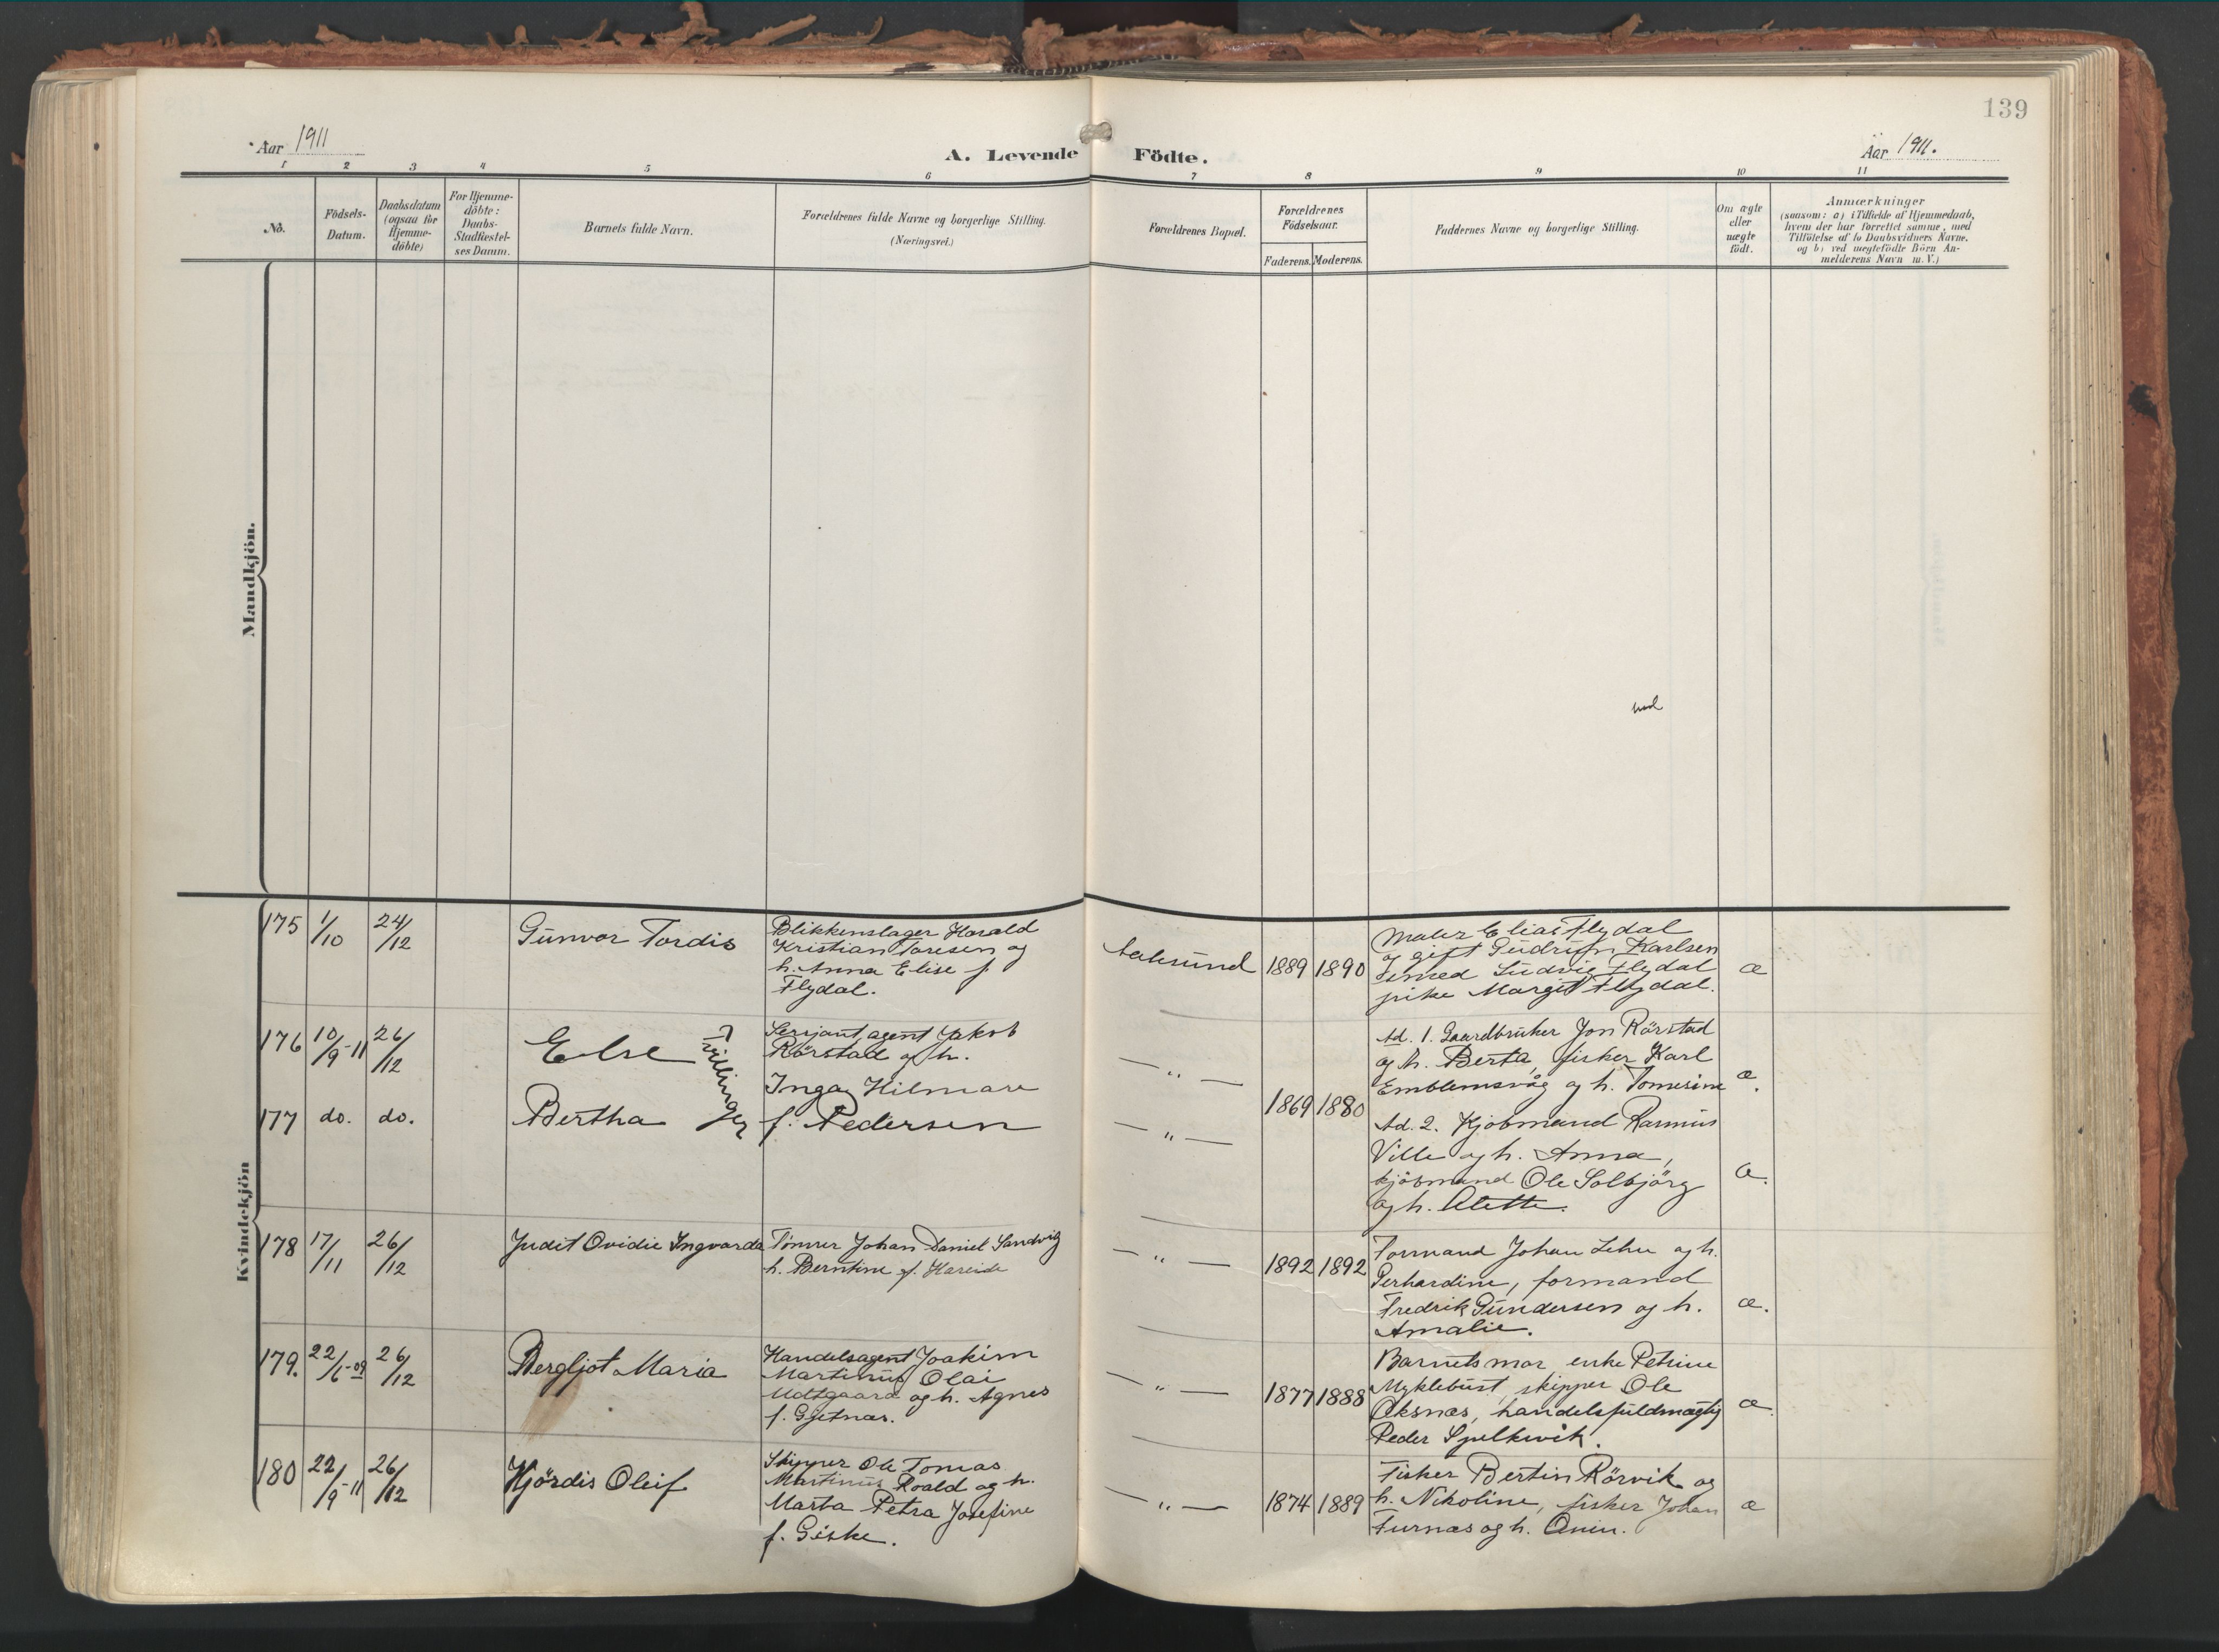 139
Aar 1911
A. Levende Födte.
Aar 1911.
1 2 3 4 5 6 7 8 9 10 11
No.
Födsels-Datum.
Daabsdatum (ogsaa for Hjemme-döbte)
For Hjemme-döbte: Daabs-Stadfæstel-ses Datum.
Barnets fulde Navn.
Forældrenes fulde Navne og borgerlige Stilling.
(Næringsvei.)
Forældrenes Bopæl.
Forældrenes Födselsaar.
Faderens. Moderens.
Faddernes Navne og borgerlige Stilling.
Om ægte eller uægte födt.
Anmærkninger
(saasom: a) i Tilfælde af Hjemmedaab,
hvem der har forrettet samme, med
Tilföielse af to Daabsvidners Navne,
og b) ved uægtefödte Börn An-
melderens Navn m. V.)
Mandkjön.
Kvindekjön
175 1/10 24/12 Gunvor Tordis
Blikkenslager Harald
Kristian Toresen og
h. Anna Elise f
Flydal.
Aalesund 1889 1890
Maler Elias Flydal
og gift Gudrun Karlsen
Ludvig Flydal
pike Margit Flydal.
æ
176 10/9-11 26/12 Else
Tvillinger
Serjant, agent Jakob
Rörstad og h.
Inga Hilmara
f. Pedersen
177 do. do. Bertha
— " —
— " —
1869 1880
Ad. 1. Gaardbruker Jon Rörstad
og h. Berta, fisker Karl
Emblemsvåg og h. Tomesine
æ.
Ad. 2. Kjöbmand Rasmus
Ville og h. Anna,
kjöbmand Ole Solbjörg
og h. Alette.
æ.
178 17/11 26/12 Judit Ovidie Ingvarda
Tömrer Johan Daniel Sandvig
h. Berntine f. Hareide
— " — 1892 1892
Formand Johan Lehn og h.
Perhardine, formand
Fredrik Gundersen og h.
Amalie.
æ.
179. 22/6-09 26/12 Bergljot Maria
Handelsagent Joakim
Martinus Olai
Udtgaard og h. Agnes
f. Gjetnæs.
— " — 1877 1888
Barnets mor, enke Petrine
Myklebust, skipper Ole
Öksnæs, handelsfuldmægtig
Peder Spjelkevik.
æ.
180 22/9-11 26/12 Hjördis Oleif
Skipper Ole Tomas
Martinus Roald og h.
Marta Petra Josefine
f. Giske.
— " — 1874 1889
Fisker Bertin Rörvik og
h. Nikoline, fisker Johan
Furnæs og h.
æ